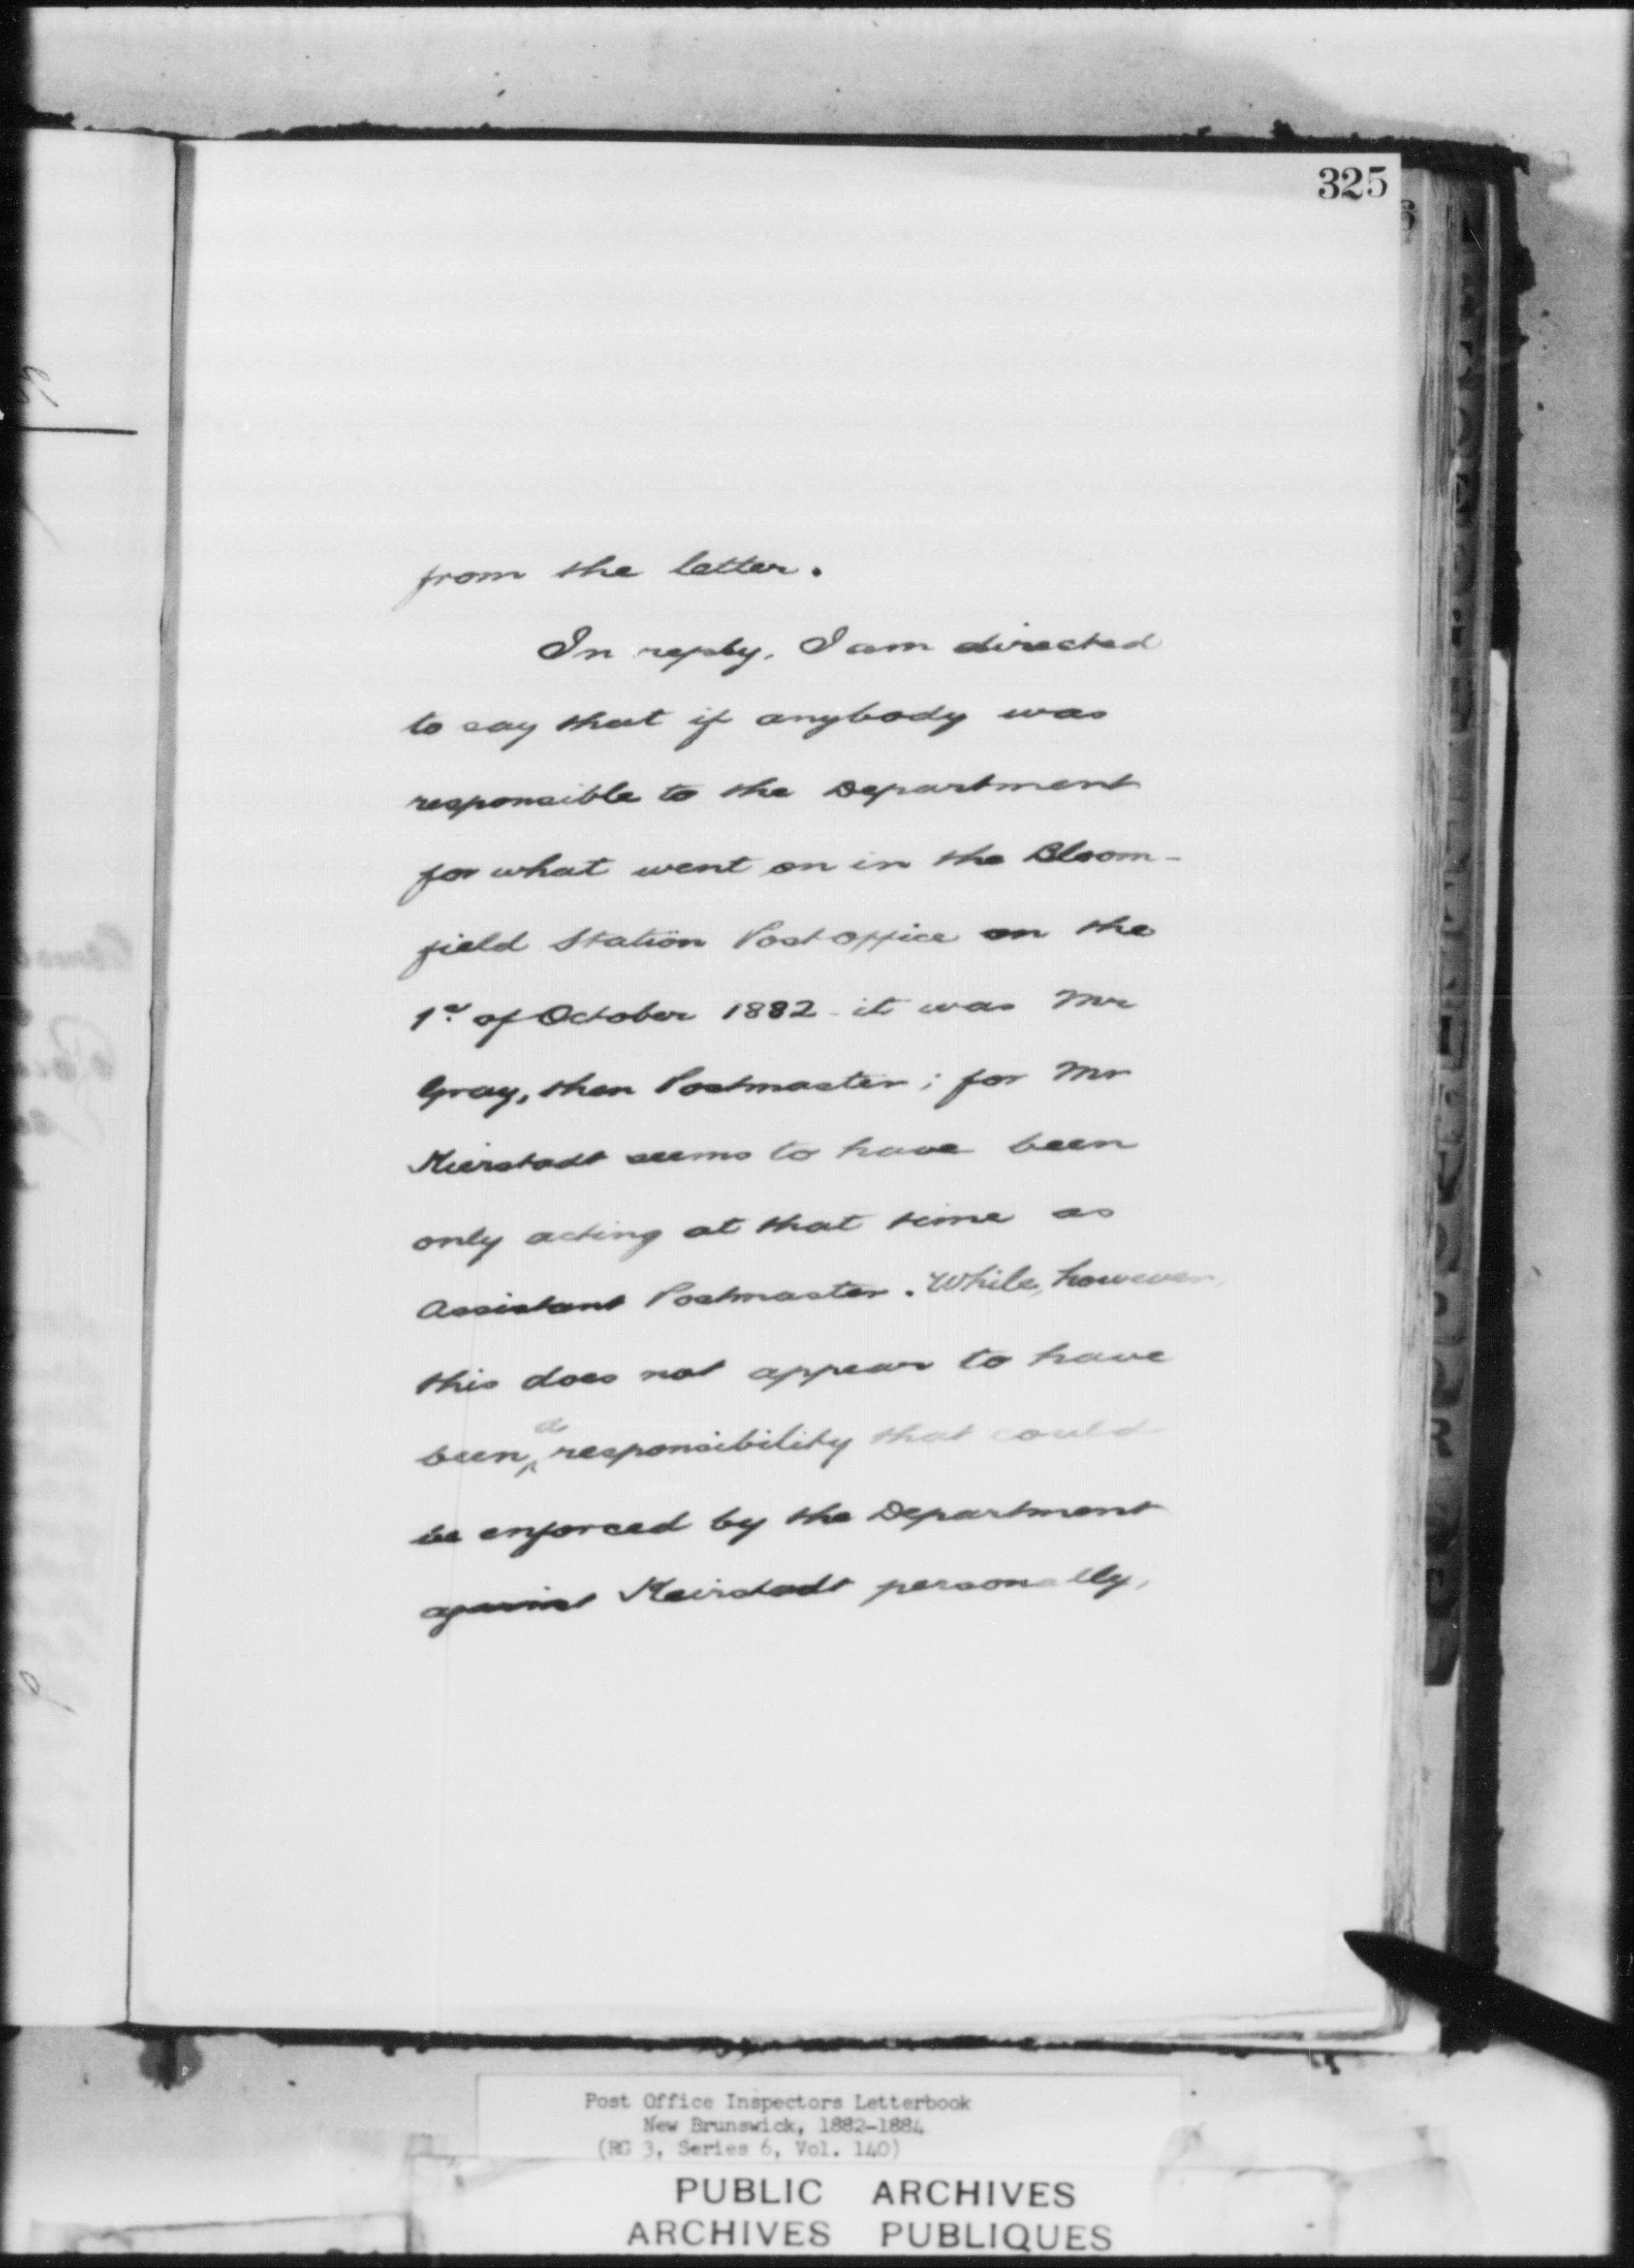 325
from the letter.
In reply, I am directed
to say that if anybody was
responsible to the Department
for what went on in the Bloom-
field Station Post office on the
1st of October 1882 - it was Mr
Gray, then Postmaster; for Mr
Kierstadt seems to have been
only acting at that time as
Assistant Postmaster. While, however,
this does not appear to have
been a responsibility that could
be enforced by the Department
against Keirstadt personally,
Post Office Inspectors Letterbook
New Brunswick, 1882-1884
(RG 3, Series 6, Vol. 140)
PUBLIC ARCHIVES
ARCHIVES PUBLIQUES